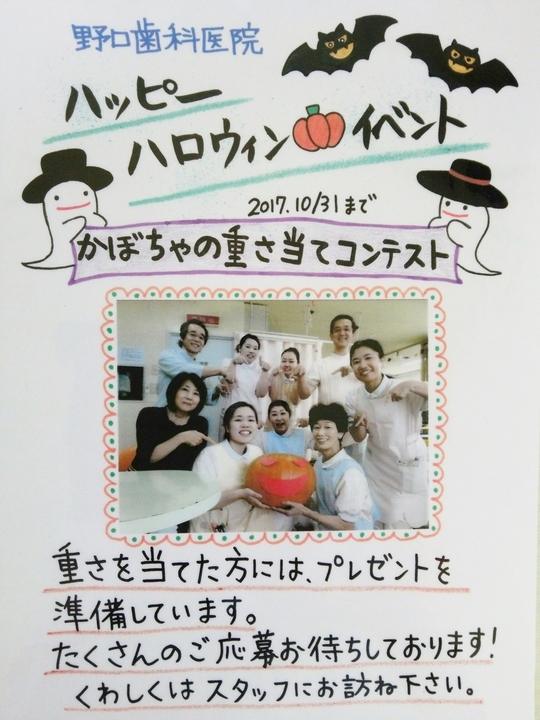 野口歯科医院
ハッピー
ハロウィン イベント
2017.10/31まで
かぼちゃの重さ当てコンテスト
重さを当てた方には、プレゼントを
準備しています。
たくさんのご応募お待ちしております!
くわしくはスタッフにお訪ね下さい。